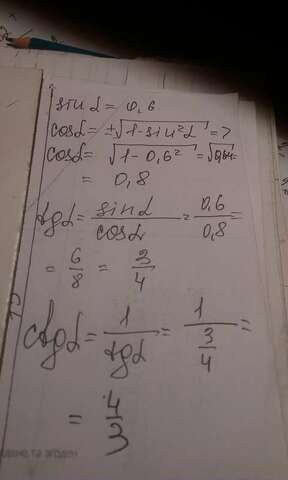 sin α = 0,6
cos α = ±√(1-sin²α) =>
cos α = √(1-0,6²) = √0,64 =
= 0,8
tg α = sin α / cos α = 0,6 / 0,8 =
= 6/8 = 3/4
ctg α = 1 / tg α = 1 / (3/4) =
= 4/3